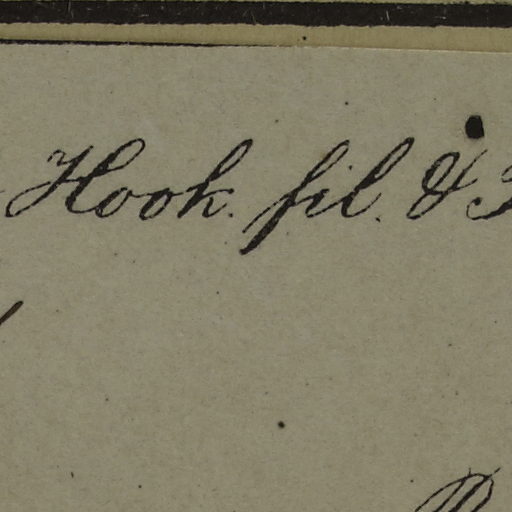 Hook. fil. &